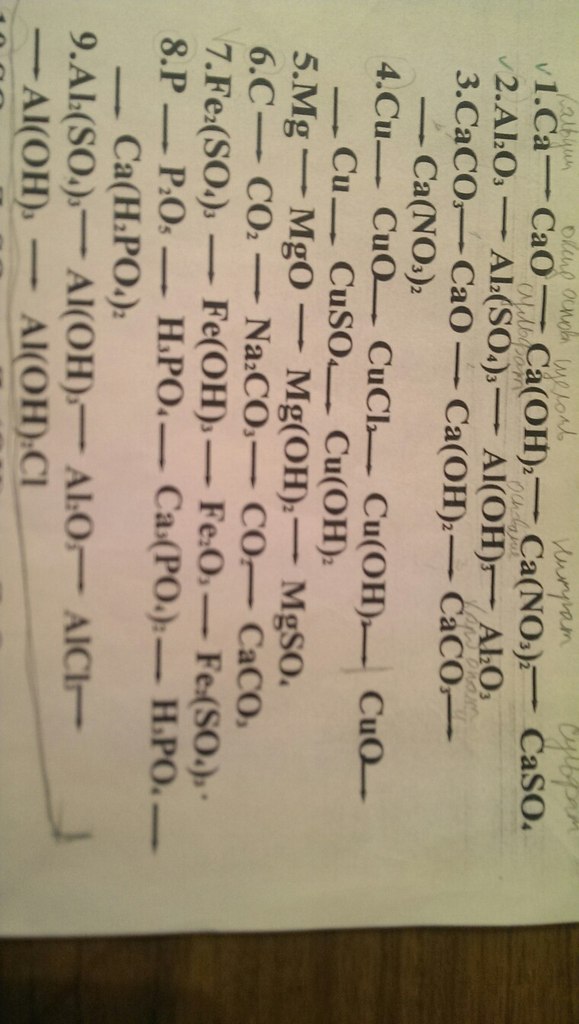 кальций оксид основ щелочь нитрат сульфат
1.Ca → CaO → Ca(OH)₂ → Ca(NO₃)₂ → CaSO₄
сульфат основание
2.Al₂O₃ → Al₂(SO₄)₃ → Al(OH)₃ → Al₂O₃
3.CaCO₃ → CaO → Ca(OH)₂ → CaCO₃ →
→ Ca(NO₃)₂
4.Cu → CuO → CuCl₂ → Cu(OH)₂ → CuO →
→ Cu → CuSO₄ → Cu(OH)₂
5.Mg → MgO → Mg(OH)₂ → MgSO₄
6.C → CO₂ → Na₂CO₃ → CO₂ → CaCO₃
7.Fe₂(SO₄)₃ → Fe(OH)₃ → Fe₂O₃ → Fe₂(SO₄)₃.
8.P → P₂O₅ → H₃PO₄ → Ca₃(PO₄)₂ → H₃PO₄ →
→ Ca(H₂PO₄)₂
9.Al₂(SO₄)₃ → Al(OH)₃ → Al₂O₃ → AlCl₃ →
→ Al(OH)₃ → Al(OH)₂Cl